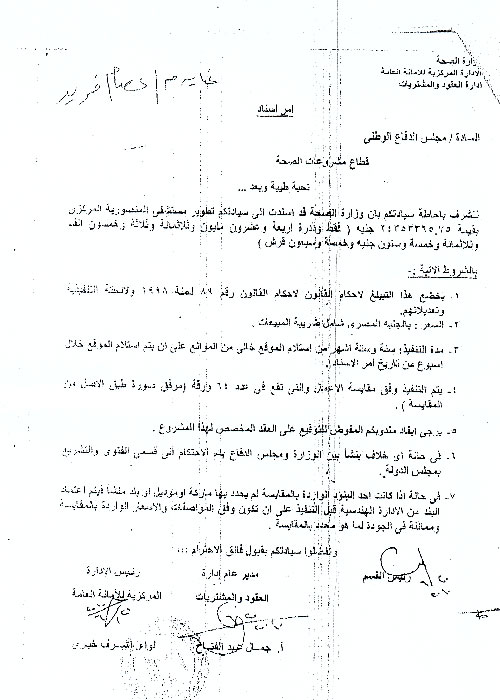 وزارة الصحة
الادارة المركزية للامانة العامة
ادارة العقود والمشتريات
امر اسناد
السادة / مجلس الدفاع الوطنى
قطاع مشروعات الصحة
تحية طيبة وبعد ...
نتشرف باحاطة سيادتكم بان وزارة الصحة قد اسندت الى سيادتكم تطوير مستشفى المنصورية المركزى
بقيمة ٢٤٣٥٣٣٦٥,٧٥ جنيه ( فقط وقدرة اربعة وعشرون مليون وثلاثمائة وثلاثة وخمسون الف
وثلاثمائة وخمسة وستون جنيه وخمسة وسبعون قرش )
بالشروط الاتية :-
١- يخضع هذا التبيلغ لاحكام القانون لاحكام القانون رقم ٨٩ لسنة ١٩٩٨ ولائحتة التنفيذية
وتعديلاتهم.
٢- السعر : بالجنيه المصرى شامل ضريبة المبيعات .
٣- مدة التنفيذ: سنة وستة اشهر من إستلام الموقع خالى من الموانع على ان يتم استلام الموقع خلال
اسبوع من تاريخ امر الاسناد.
٤- يتم التنفيذ وفق مقايسة الاعمال والتى تقع فى عدد ٦٤ ورقة (مرفق صورة طبق الاصل من
المقايسة ) .
٥- يرجى إيفاد مندوبكم المفوض للتوقيع على العقد المخصص لهذا المشروع .
٦- فى حالة أى خلاف ينشأ بين الوزارة ومجلس الدفاع يتم الاحتكام الى قسمى الفتوى والتشريع
بمجلس الدولة.
٧- فى حالة اذا كانت احد البنود الواردة بالمقايسة لم يحدد بها ماركة اوموديل او بلد منشأ فيتم اعتماد
البند من الادارة الهندسية قبل التنفيذ على ان تكون وفق المواصفات والاسعار الواردة بالمقايسة
ومماثلة فى الجودة لما هو محدد بالمقايسة .
وتفضلوا سيادتكم بقبول فائق الاحترام ...
رئيس القسم
مدير عام إدارة
العقود والمشتريات
أ. جمال عبد الفتاح
رئيس الادارة
المركزية للأمانة العامة
لواء/ اشرف خيرى